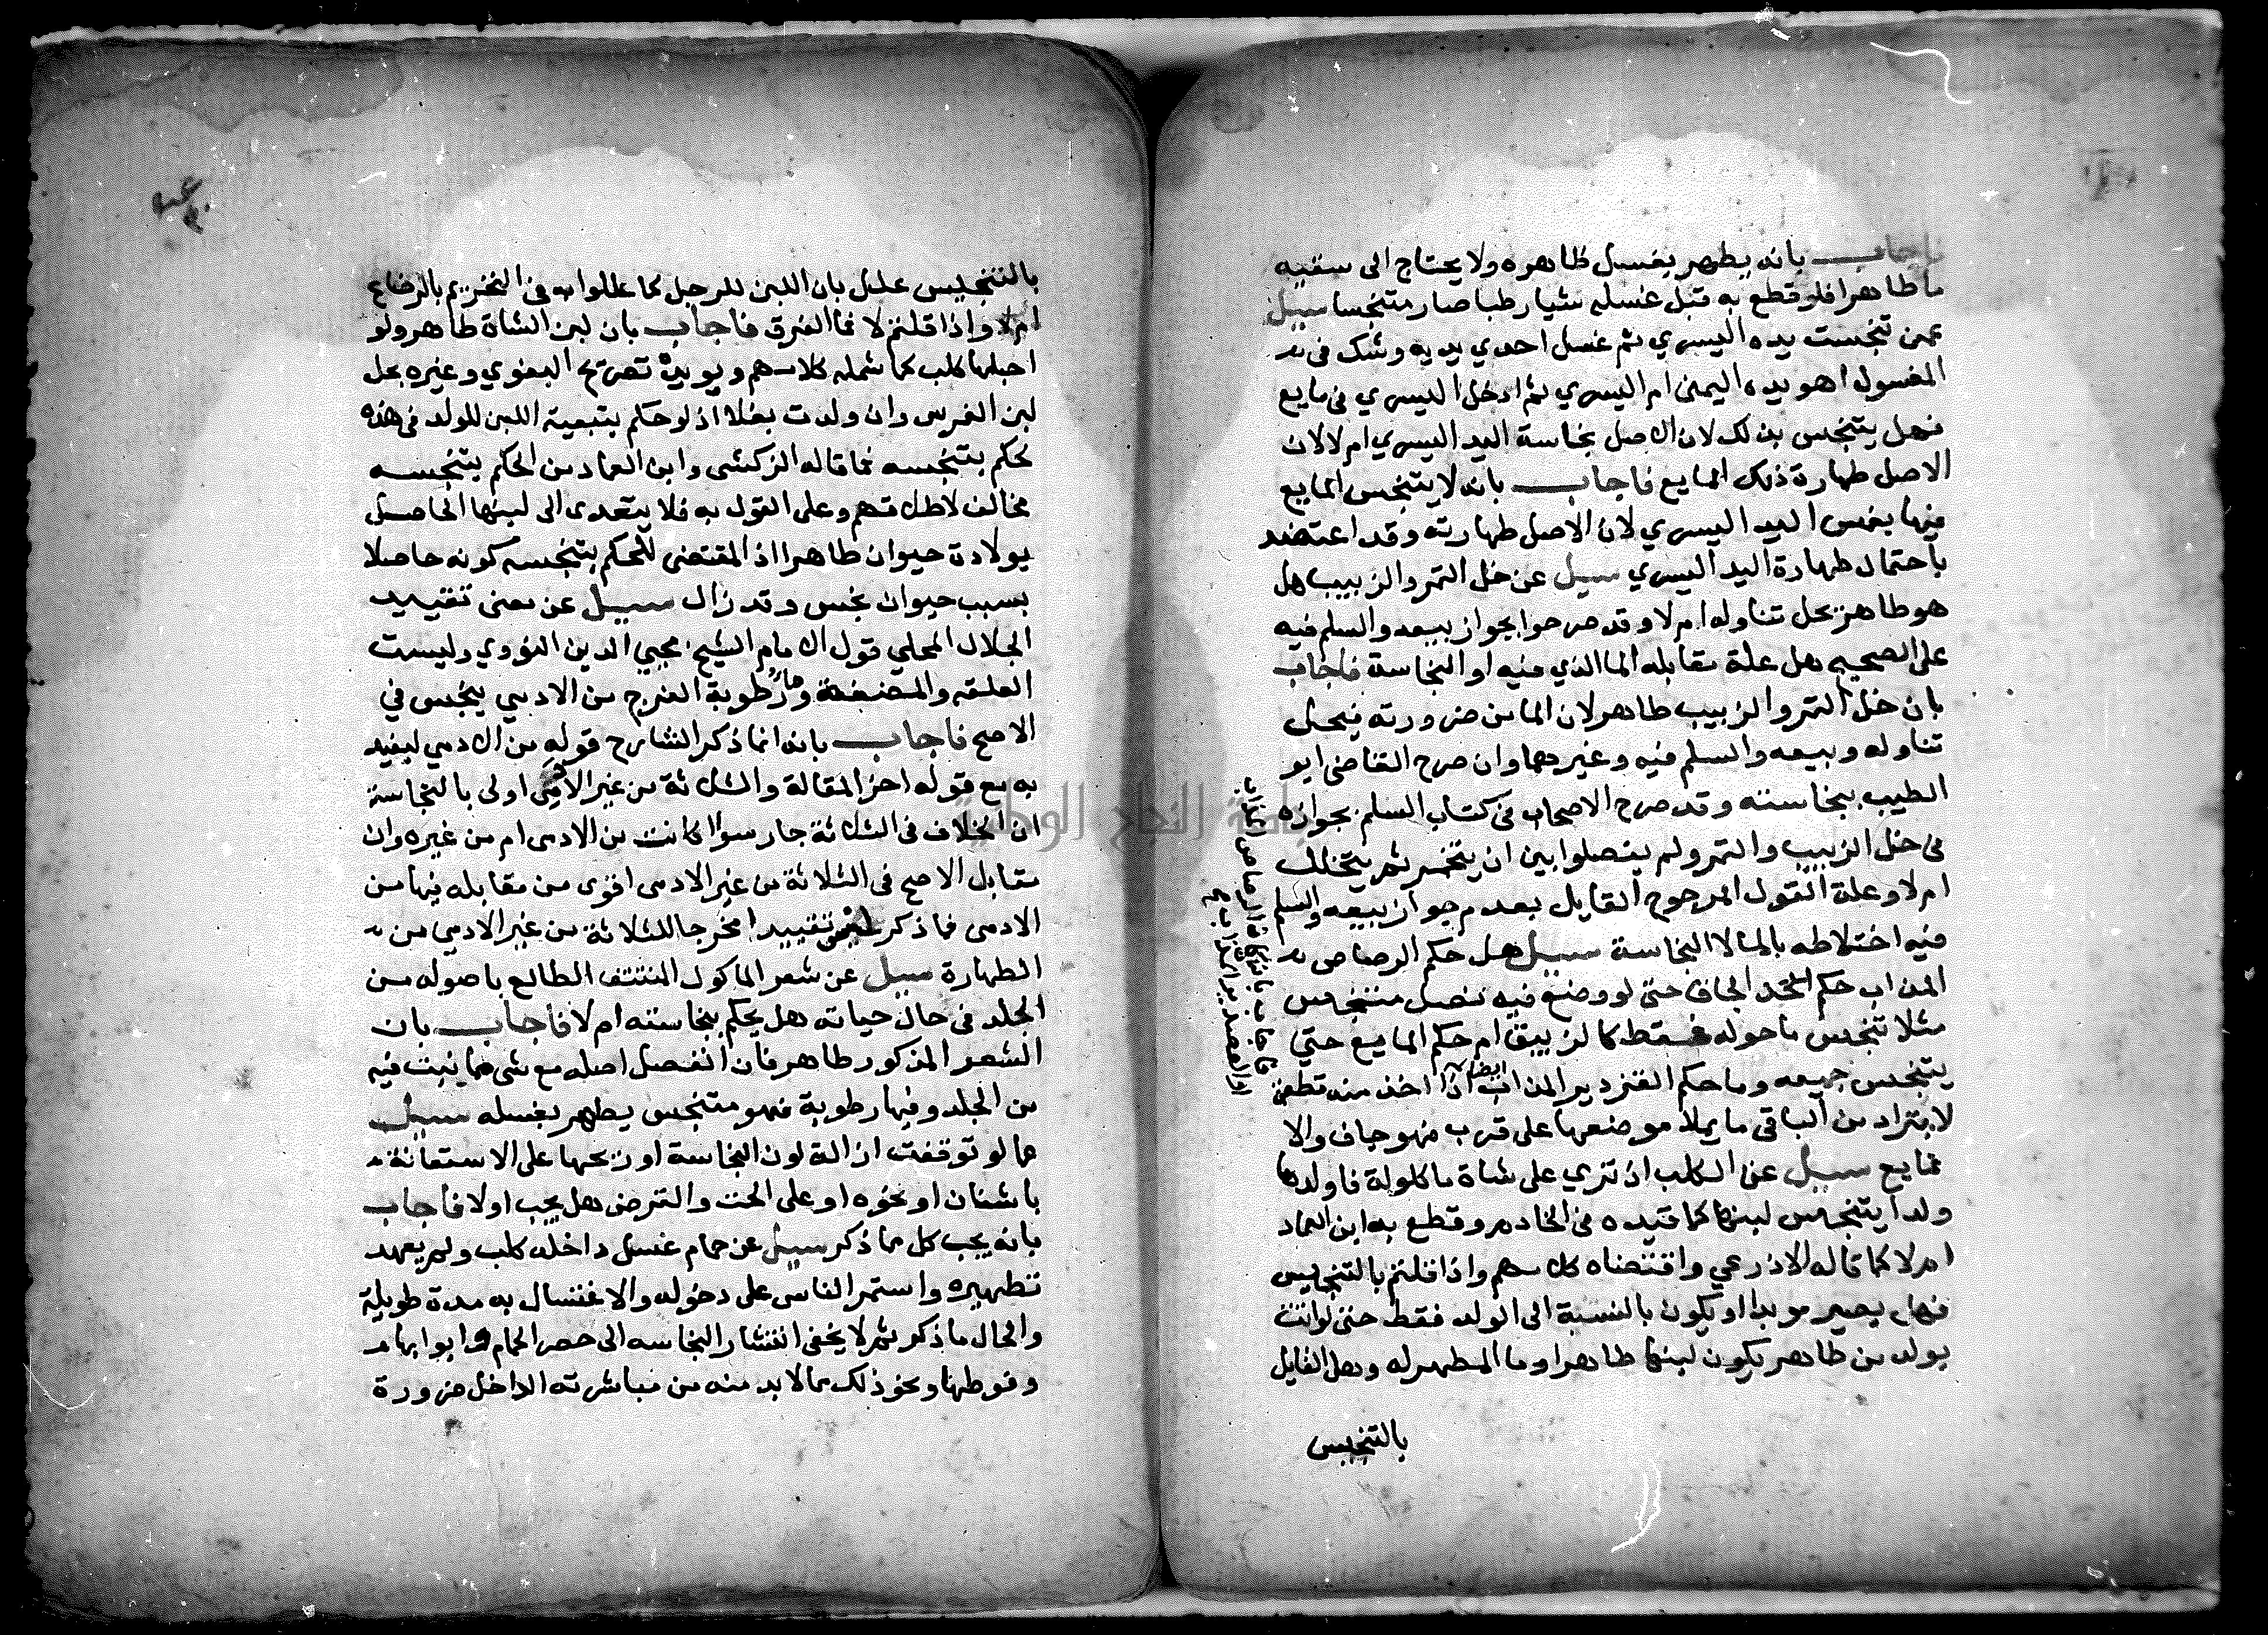 فاجاب بانه يطهر بغسل ظاهره ولا يحتاج الى سقيه
ما طاهرا فلو قطع به قبل غسله شيا رطبا صار متنجسا سيل
عمن تنجست يده اليسري ثم غسل احدي يديه وشك في
المغسول اهو يده اليمنى ام اليسري ثم ادخل اليسري في مايع
فهل يتنجس بذلك لان الاصل نجاسة اليد اليسري ام لا لان
الاصل طهارة ذلك المايع فاجاب بانه لا يتنجس المايع
فيها بغمس اليد اليسري لان الاصل طهارته وقد اعتضد
باحتمال طهارة اليد اليسري سيل عن خل التمر والزبيب هل
هو طاهر يحل تناوله ام لا وقد صرحوا بجواز بيعه والسلم فيه
على الصحيح وهل علة مقابله الما الذي فيه او النجاسة فاجاب
بان خل التمر والزبيب طاهر لان الما من ضرورته فيحل
تناوله وبيعه والسلم فيه وغيرهما وان صرح القاضي ابو
الطيب بنجاسته وقد صرح الاصحاب في كتاب السلم بجوازه
في خل الزبيب والتمر ولم يفصلوا بين ان يتخمر ثم يتخلل
ام لا وعلة القول المرجوح القايل بعدم جواز بيعه والسلم
فيه اختلاطه بالما لا النجاسة سيل هل حكم الرصاص
المذاب حكم الجاف حتى لو وضع فيه نصل متنجس
مثلا تنجس ما حوله فقط كالزيبق ام حكم المايع حتي
يتنجس جميعه وما حكم القزدير المذاب ايضا اذا اخذ منه قطعة
لا يتراد من الباقي ما يملا موضعها على قرب فهو جاف والا
فمايع سيل عن الكلب اذ نزي على شاة ماكولة فاولدها
ولدا يتنجس لبنها كما قيده في الخادم وقطع به ابن العماد
ام لا كما قاله الاذرعي واقتضاه كلامهم واذا قلتم بالتنجيس
فهل يصير موبدا او يكون بالنسبة الى الولد فقط حتى لو اتت
بولد من طاهر يكون لبنها طاهرا وما المطهر له وهل القايل
بالتنجيس
بالتنجيس علل بان اللبن للرجل كما عللوا به في التحريم بالرضاع
ام لا واذا قلتم لا فما الفرق فاجاب بان لبن الشاة طاهر ولو
احبلها كلب كما شمله كلامهم ويويده تصريح البغوي وغيره بحل
لبن الفرس وان ولدت بغلا اذ لو حكم بتبعية اللبن للولد في هذه
لحكم بتنجسه فما قاله الزركشى وابن العماد من الحكم بتنجسه
مخالف لاطلاقهم وعلى القول به فلا يتعدى الى لبنها الحاصل
بولادة حيوان طاهرا اذ المقتضى للحكم بتنجسه كونه حاصلا
بسبب حيوان نجس وقد زال سيل عن معنى تقييد
الجلال المحلي قول الامام الشيخ محيي الدين النووي وليست
العلقه والمضغة ورطوبة الفرج من الادمي بنجس في
الاصح فاجاب بانه انما ذكر الشارح قوله من الادمي ليفيد
به مع قوله اخر المقالة والثلاثة من غير الادمي اولى بالنجاسة
ان الخلاف في الثلاثة جار سوا كانت من الادمى ام من غيره وان
مقابل الاصح في الثلاثة من غير الادمى اقوى من مقابله فيها من
الادمى فما ذكر ليس تقييدا مخرجا للثلاثة من غير الادمي من
الطهارة سيل عن شعر الماكول المنتتف الطالع باصوله من
الجلد في حال حياته هل يحكم بنجاسته ام لا فاجاب بان
الشعر المذكور طاهر فان انفصل اصله مع شى مما نبت فيه
من الجلد وفيها رطوبة فهو متنجس يطهر بغسله سيل
عما لو توقفت ازالة لون النجاسة او ريحها على الاستعانة
باشنان او نحوه او على الحت والقرض هل يجب اولا فاجاب
بانه يجب كل مما ذكر سيل عن حمام غسل داخله كلب ولم يعهد
تطهيره واستمر الناس على دخوله والاغتسال به مدة طويلة
والحال ما ذكر ثم لا يخفى انتشار النجاسه الى حصر الحمام وابوابها
وفوطها ونحو ذلك مما لا بد منه من مباشرته الداخل ضرورة
جامعة النجاح الوطنية